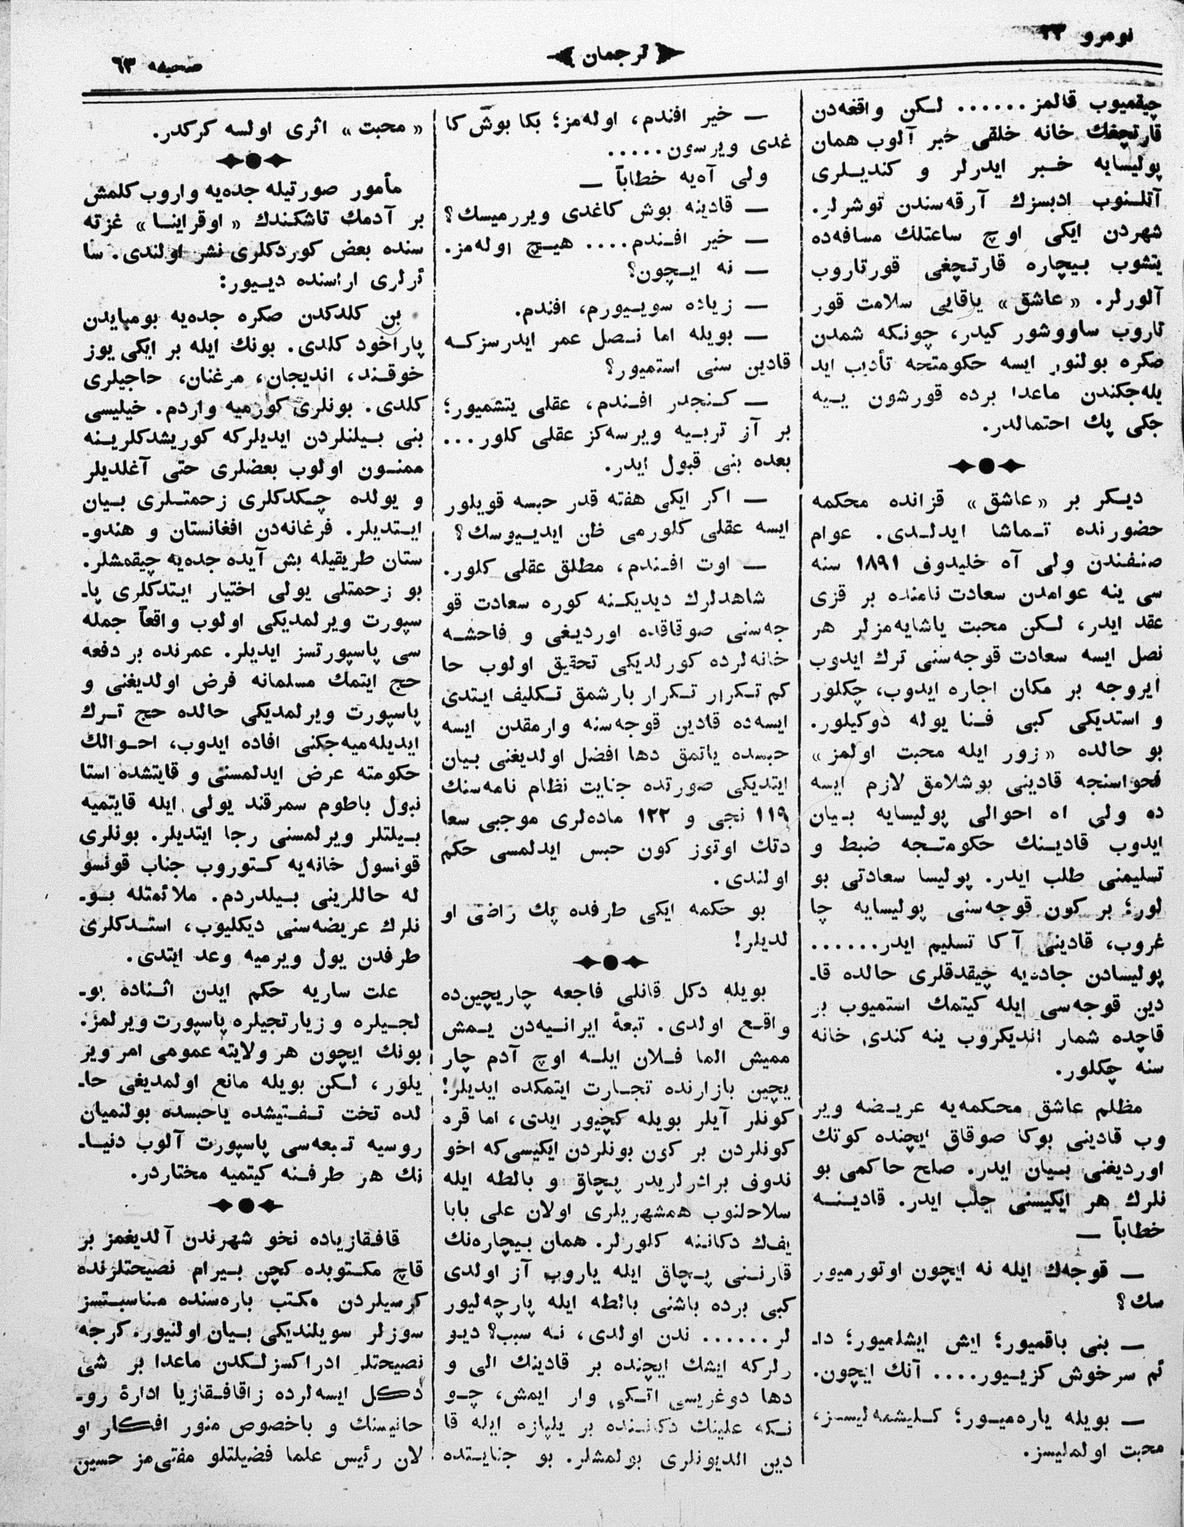 نومرو ٢٣
ترجمان
صحیفه ٦٣
چیقمیوب قالمز...... لکن واقعه‌دن
قارتچغك خانه خلقی خبر آلوب همان
پولیسایه خبر ایدرلر و کندیلری
آتلنوب ادبسزك آرقه‌سندن توشرلر.
شهردن ایکی اوچ ساعتلك مسافه‌ده
یتشوب بیچاره قارتچغی قورتاروب
آلورلر. «عاشق» یاقایی سلامت قور
تاروب ساووشور کیدر، چونکه شمدن
صکره بولنور ایسه حکومتجه تأدیب اید
یله‌جکندن ماعدا برده قورشون ییه
جکی پك احتمالدر.
دیکر بر «عاشق» قزانده محکمه
حضورنده تماشا ایدلدی. عوام
صنفندن ولی آه خلیدوف ١٨٩١ سنه
سی ینه عوامدن سعادت نامنده بر قزی
عقد ایدر، لکن محبت یاشایه‌مزلر هر
نصل ایسه سعادت قوجه‌سنی ترك ایدوب
آیروجه بر مکان اجاره ایدوب، چکلور
و استدیکی کبی فنا یوله دوکیلور.
بو حالده «زور ایله محبت اولمز»
فحواسنجه قادینی بوشلامق لازم ایسه
ده ولی اه احوالی پولیسایه بیان
ایدوب قادینك حکومتجه ضبط و
تسلیمنی طلب ایدر. پولیسا سعادتی بو
لور؛ بر کون قوجه‌سنی پولیسایه چا
غروب، قادینی آکا تسلیم ایدر......
پولیسادن جاده‌یه چیقدقلری حالده قا-
دین قوجه‌سی ایله کیتمك استمیوب بر
قاچده شمار اندیکروب ینه کندی خانه
سنه چکلور.
مظلم عاشق محکمه‌یه عریضه ویر
وب قادینی بوکا صوقاق ایچنده کوتك
اوردیغنی بیان ایدر. صلح حاکمی بو
نلرك هر ایکیسنی جلب ایدر. قادینه
خطاباً —
— قوجه‌ك ایله نه ایچون اوتورمیور
سك؟
— بنی باقمیور؛ ایش ایشلمیور؛ دا-
ئم سرخوش کزییور.... آنك ایچون.
— بویله یاره‌میور؛ کلیشمه‌لیسز،
محبت اولملیسز.
— خیر افندم، اوله‌مز؛ بکا بوش کا
غدی ویرسون.....
ولی آه‌یه خطاباً —
— قادینه بوش کاغدی ویررمیسك؟
— خیر افندم.... هیچ اوله‌مز.
— نه ایچون؟
— زیاده سوییورم، افندم.
— بویله اما نصل عمر ایدرسزکه
قادین سنی استمیور؟
— کنجدر افندم، عقلی یتشمیور؛
بر آز تربیه ویرسه‌کز عقلی کلور...
بعده بنی قبول ایدر.
— اکر ایکی هفته قدر حبسه قویلور
ایسه عقلی کلورمی ظن ایدییوسك؟
— اوت افندم، مطلق عقلی کلور.
شاهدلرك دیدیکنه کوره سعادت قو
جه‌سنی صوقاقده اوردیغی و فاحشه
خانه‌لرده کورلدیکی تحقیق اولوب حا
کم تکرار تکرار بارشمق تکلیف ایتدی
ایسه‌ده قادین قوجه‌سنه وارمقدن ایسه
حبسده یاتمق دها افضل اولدیغنی بیان
ایتدیکی صورتده جنایت نظام نامه‌سنك
١١٩ نجی و ١٢٢ ماده‌لری موجبی سعا
دتك اوتوز کون حبس ایدلمسی حکم
اولندی.
بو حکمه ایکی طرفده پك راضی او
لدیلر!
بویله دکل قانلی فاجعه چاریچین‌ده
واقع اولدی. تبعهٔ ایرانیه‌دن یمش
ممیش الما فلان ایله اوچ آدم چار
یچین بازارنده تجارت ایتمکده ایدیلر!
کونلر آیلر بویله کچیور ایدی، اما قره
کونلردن بر کون بونلردن ایکیسی‌که اخو
ندوف برادرلریدر پچاق و بالطه ایله
سلاحلنوب همشهریلری اولان علی بابا
یفك دکاننه کلورلر. همان بیچاره‌نك
قارننی پچاق ایله یاروب آز اولدی
کبی برده باشنی بالطه ایله پارچه‌لیور
لر...... ندن اولدی، نه سبب؟ دیو
رلرکه ایشك ایچنده بر قادینك الی و
دها دوغریسی اتکی وار ایمش، چو
نکه علینك دکاننده بر یلپازه ایله قا
دین الدیونلری بولمشلر. بو جنایتده
«محبت» اثری اولسه کرکدر.
مأمور صورتیله جده‌یه واروب کلمش
بر آدمك تاشکندك «اوقراینا» غزته
سنده بعض کوردکلری نشر اولندی. سا
ئرلری اراسنده دییور:
بن کلدکدن صکره جده‌یه بومبایدن
پاراخود کلدی. بونك ایله بر ایکی یوز
خوقند، اندیجان، مرغنان، حاجیلری
کلدی. بونلری کورمیه واردم. خیلیسی
بنی بیلنلردن ایدیلرکه کوریشدکلرینه
ممنون اولوب بعضلری حتی آغلدیلر
و یولده چکدکلری زحمتلری بیان
ایتدیلر. فرغانه‌دن افغانستان و هندو-
ستان طریقیله بش آیده جده‌یه چیقمشلر.
بو زحمتلی یولی اختیار ایتدکلری پا-
سپورت ویرلمدیکی اولوب واقعاً جمله
سی پاسپورتسز ایدیلر. عمرنده بر دفعه
حج ایتمك مسلمانه فرض اولدیغنی و
پاسپورت ویرلمدیکی حالده حج ترك
ایدیله‌میه‌جکنی افاده ایدوب، احوالك
حکومته عرض ایدلمسنی و قایتشده استا
نبول باطوم سمرقند یولی ایله قایتمیه
بیلتلر ویرلمسنی رجا ایتدیلر. بونلری
قونسول خانه‌یه کتوروب جناب قونسو
له حاللرینی بیلدردم. ملائمتله بو-
نلرك عریضه‌سنی دیکلیوب، استدکلری
طرفدن یول ویرمیه وعد ایتدی.
علت ساریه حکم ایدن اثناده یو-
لجیلره و زیارتجیلره پاسپورت ویرلمز.
بونك ایچون هر ولایته عمومی امر ویر
یلور، لکن بویله مانع اولمدیغی حا-
لده تخت تفتیشده یاحبسده بولنمیان
روسیه تبعه‌سی پاسپورت آلوب دنیا-
نك هر طرفنه کیتمیه مختاردر.
قافقازیاده نخو شهرندن آلدیغمز بر
قاچ مکتوبده کچن بیرام نصیحتلرنده
کرسیلردن مکتب باره‌سنده مناسبتسز
سوزلر سویلندیکی بیان اولنیور. کرچه
نصیحتلر ادراکسزلکدن ماعدا بر شی
دکل ایسه‌لرده زاقافقازیا ادارهٔ رو-
حانیسنك و باخصوص منور افکار او
لان رئیس علما فضیلتلو مفتی‌مز حسین